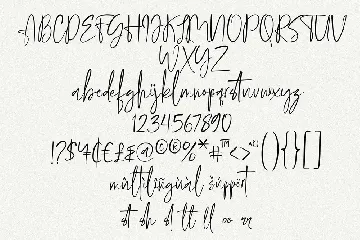 ABCDEFGHIJKLMNOPQRSTUV
WXYZ
abcdefghijklmnopqrstuvwxyz
1234567890
!?$¥₵€£&@©®%*#™<>"(){}[]
multilingual support
st sh st tt ll